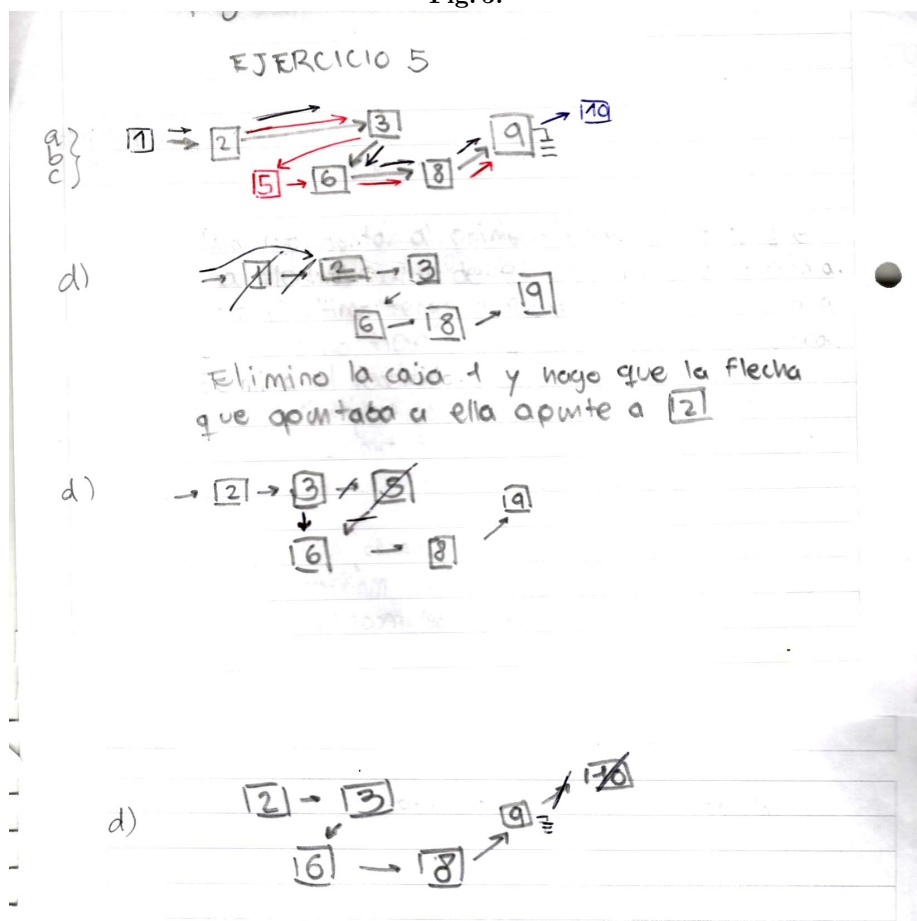 Fig. 5.
EJERCICIO 5
a)
b)
c)
1 2 3
5 6 8 9 10
d)
1 2 3
6 8 9
Elimino la caja 1 y hago que la flecha
que apuntaba a ella apunte a 2
d)
2 3 5
6 8 9
d)
2 3
6 8 9 10